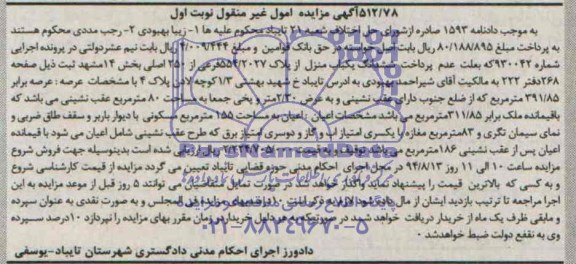 ۵۱۲/۷۸آگهی مزایده اموال غیر منقول نوبت اول
به موجب دادنامه ۱۵۹۳ صادره ازشورای حل اختلاف شعبه ۲۱ تایباد محکوم علیه ها ۱-زیبا بهبودی ۲- رجب مددی محکوم هستند
به پرداخت مبلغ ۸۰/۱۸۸/۸۹۵ ریال بابت اصل خواسته در حق بانک قوامین و مبلغ ۴/۰۰۹/۴۴۴ ریال بابت نیم عشردولتی در پرونده اجرایی
شماره۹۳۰۰۴۲که بعلت عدم پرداخت ششدانگ یکباب منزل از پلاک ۵۵۴/۲۰۲۷فرعی از ۲۵۰ اصلی بخش ۱۴مشهد ثبت ذیل صفحه
۲۶۸دفتر ۲۲۲ به مالکیت آقای شیراحمد بهبودی به آدرس تایباد خ شهید بهشتی ۱/۳کوچه لادن پلاک ۴ با مشخصات عرصه : عرصه برابر
۳۹۱/۸۵ مترمربع که از ضلع جنوب دارای عقب نشینی و به عرض ۲/۳۰متر و یخی جمعا به مساحت ۸۰ مترمربع عقب نشینی می باشد که
باقیمانده ملک برابر ۳۱۱/۸۵مترمربع می باشد مشخصات اعیان : اعیان به مساحت ۱۵۵ مترمربع مسکونی با دیوار باربر و سقف طاق ضربی و
نمای سیمان تگری و ۸۳مترمربع مغازه با یکسری امتیاز آب و گاز و دوسری امتیاز برق که طرح عقب نشینی شامل اعیان می شود با قیمانده
اعیان پس از عقب نشینی ۱۸۶مترمربع می باشد توقیف و به قیمت ریال ارزیابی شده است بدینوسیله جهت فروش شروع
مزایده ساعت ۱۰ الی ۱۱ روز ۹۴/۸/۱۳ در محل اجرای احکام مدنی حوزه قضایی تایباد تعیین می گردد مزایده از قیمت کارشناسی شروع
و به کسی که بالاترین قیمت را پیشنهاد نماید واگذار خواهد شد در صورت تمایل متقاضیان می توانند ۵ روز قبل از موعد مزایده به این
اجرا مراجعه تا ترتیب بازدید ایشان از مال داده شود لازم به ذکر است ۱۰درصدبهای مزایده فی المجلس و به صورت نقدی به عنوان سپرده
و مابقی ظرف یک ماه از خریدار دریافت خواهد شد در صورتیکه به هر دلیل خریدار در زمان مقرر بهای مزایده را نپردازد ۱۰درصد سپرده
وی به نفع دولت ضبط خواهدشد .
دادورز اجرای احکام مدنی دادگستری شهرستان تایباد-یوسفی
۰۲۱-۸۸۳۴۹۶۷۰-۵